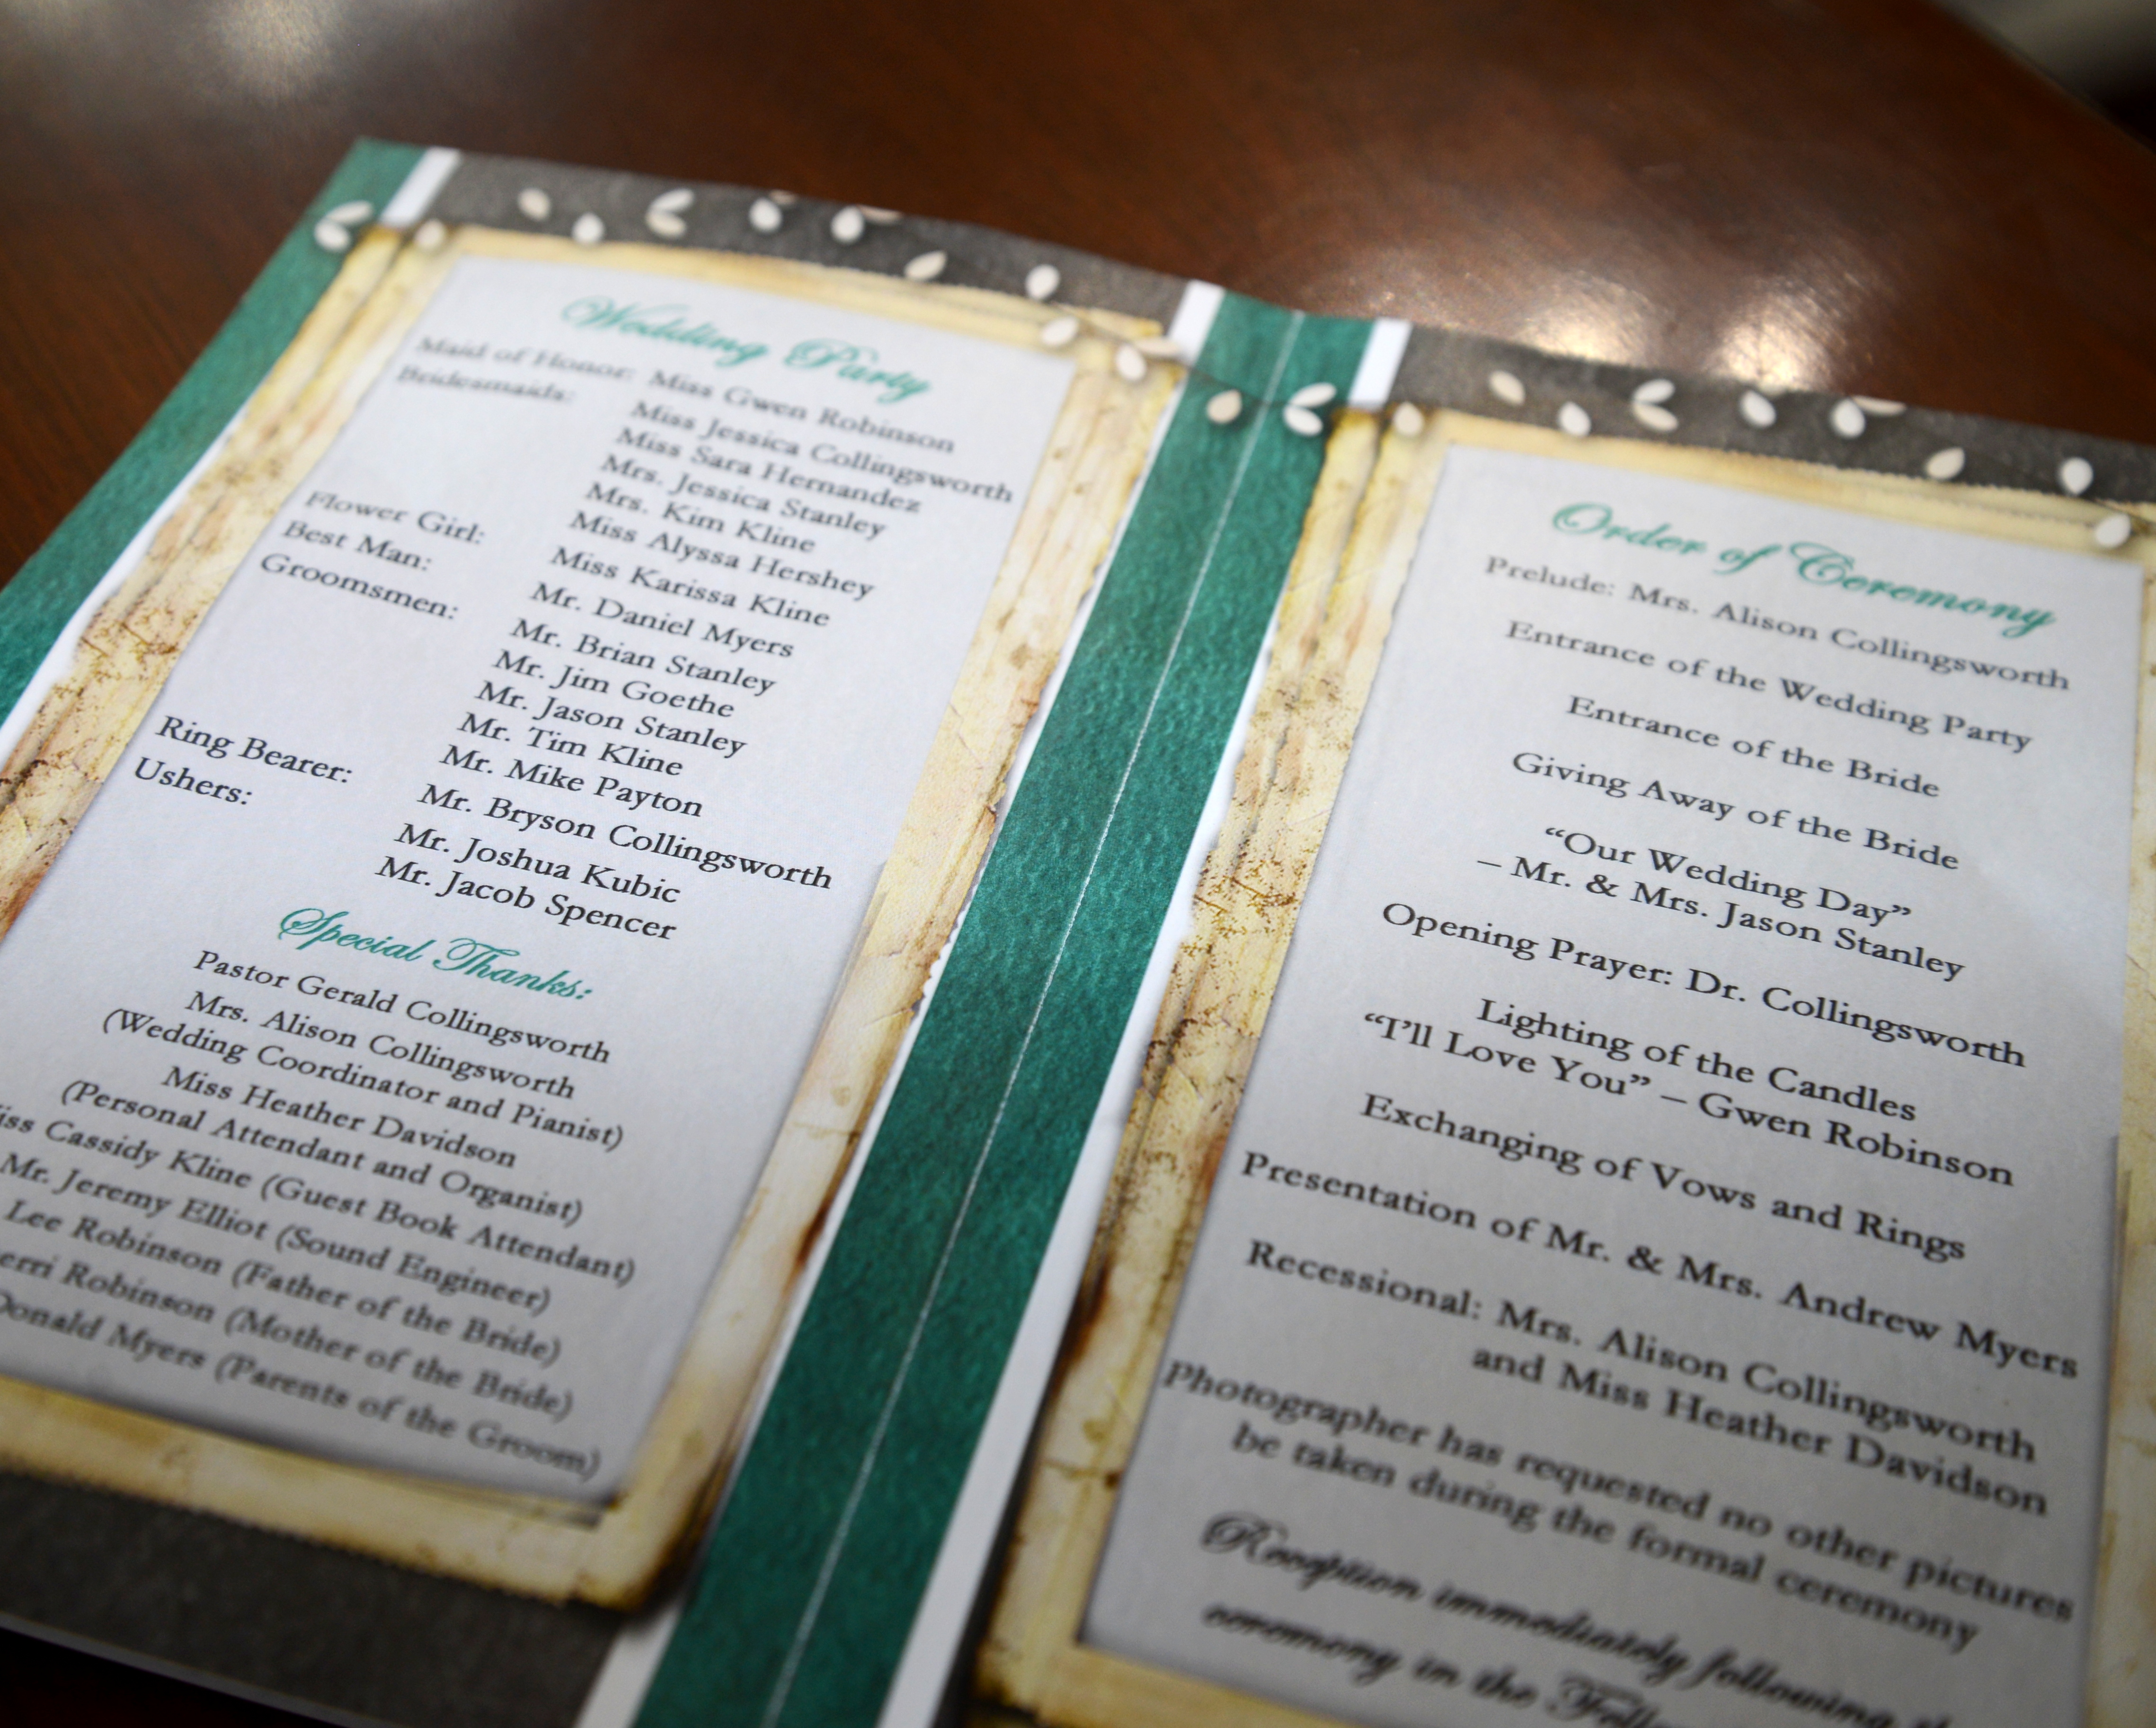 Wedding Party
Maid of Honor: Miss Gwen Robinson
Bridesmaids: Miss Jessica Collingsworth
Miss Sara Hernandez
Mrs. Jessica Stanley
Mrs. Kim Kline
Miss Alyssa Hershey
Flower Girl: Miss Karissa Kline
Best Man: Mr. Daniel Myers
Groomsmen: Mr. Brian Stanley
Mr. Jim Goethe
Mr. Jason Stanley
Mr. Tim Kline
Mr. Mike Payton
Ring Bearer: Mr. Bryson Collingsworth
Ushers: Mr. Joshua Kubic
Mr. Jacob Spencer
Special Thanks:
Pastor Gerald Collingsworth
Mrs. Alison Collingsworth
(Wedding Coordinator and Pianist)
Miss Heather Davidson
(Personal Attendant and Organist)
Cassidy Kline (Guest Book Attendant)
Mr. Jeremy Elliot (Sound Engineer)
Lee Robinson (Father of the Bride)
Robinson (Mother of the Bride)
Donald Myers (Parents of the Groom)
Order of Ceremony
Prelude: Mrs. Alison Collingsworth
Entrance of the Wedding Party
Entrance of the Bride
Giving Away of the Bride
“Our Wedding Day”
– Mr. & Mrs. Jason Stanley
Opening Prayer: Dr. Collingsworth
Lighting of the Candles
“I’ll Love You” – Gwen Robinson
Exchanging of Vows and Rings
Presentation of Mr. & Mrs. Andrew Myers
Recessional: Mrs. Alison Collingsworth
and Miss Heather Davidson
Photographer has requested no other pictures
be taken during the formal ceremony
Reception immediately following
ceremony in the